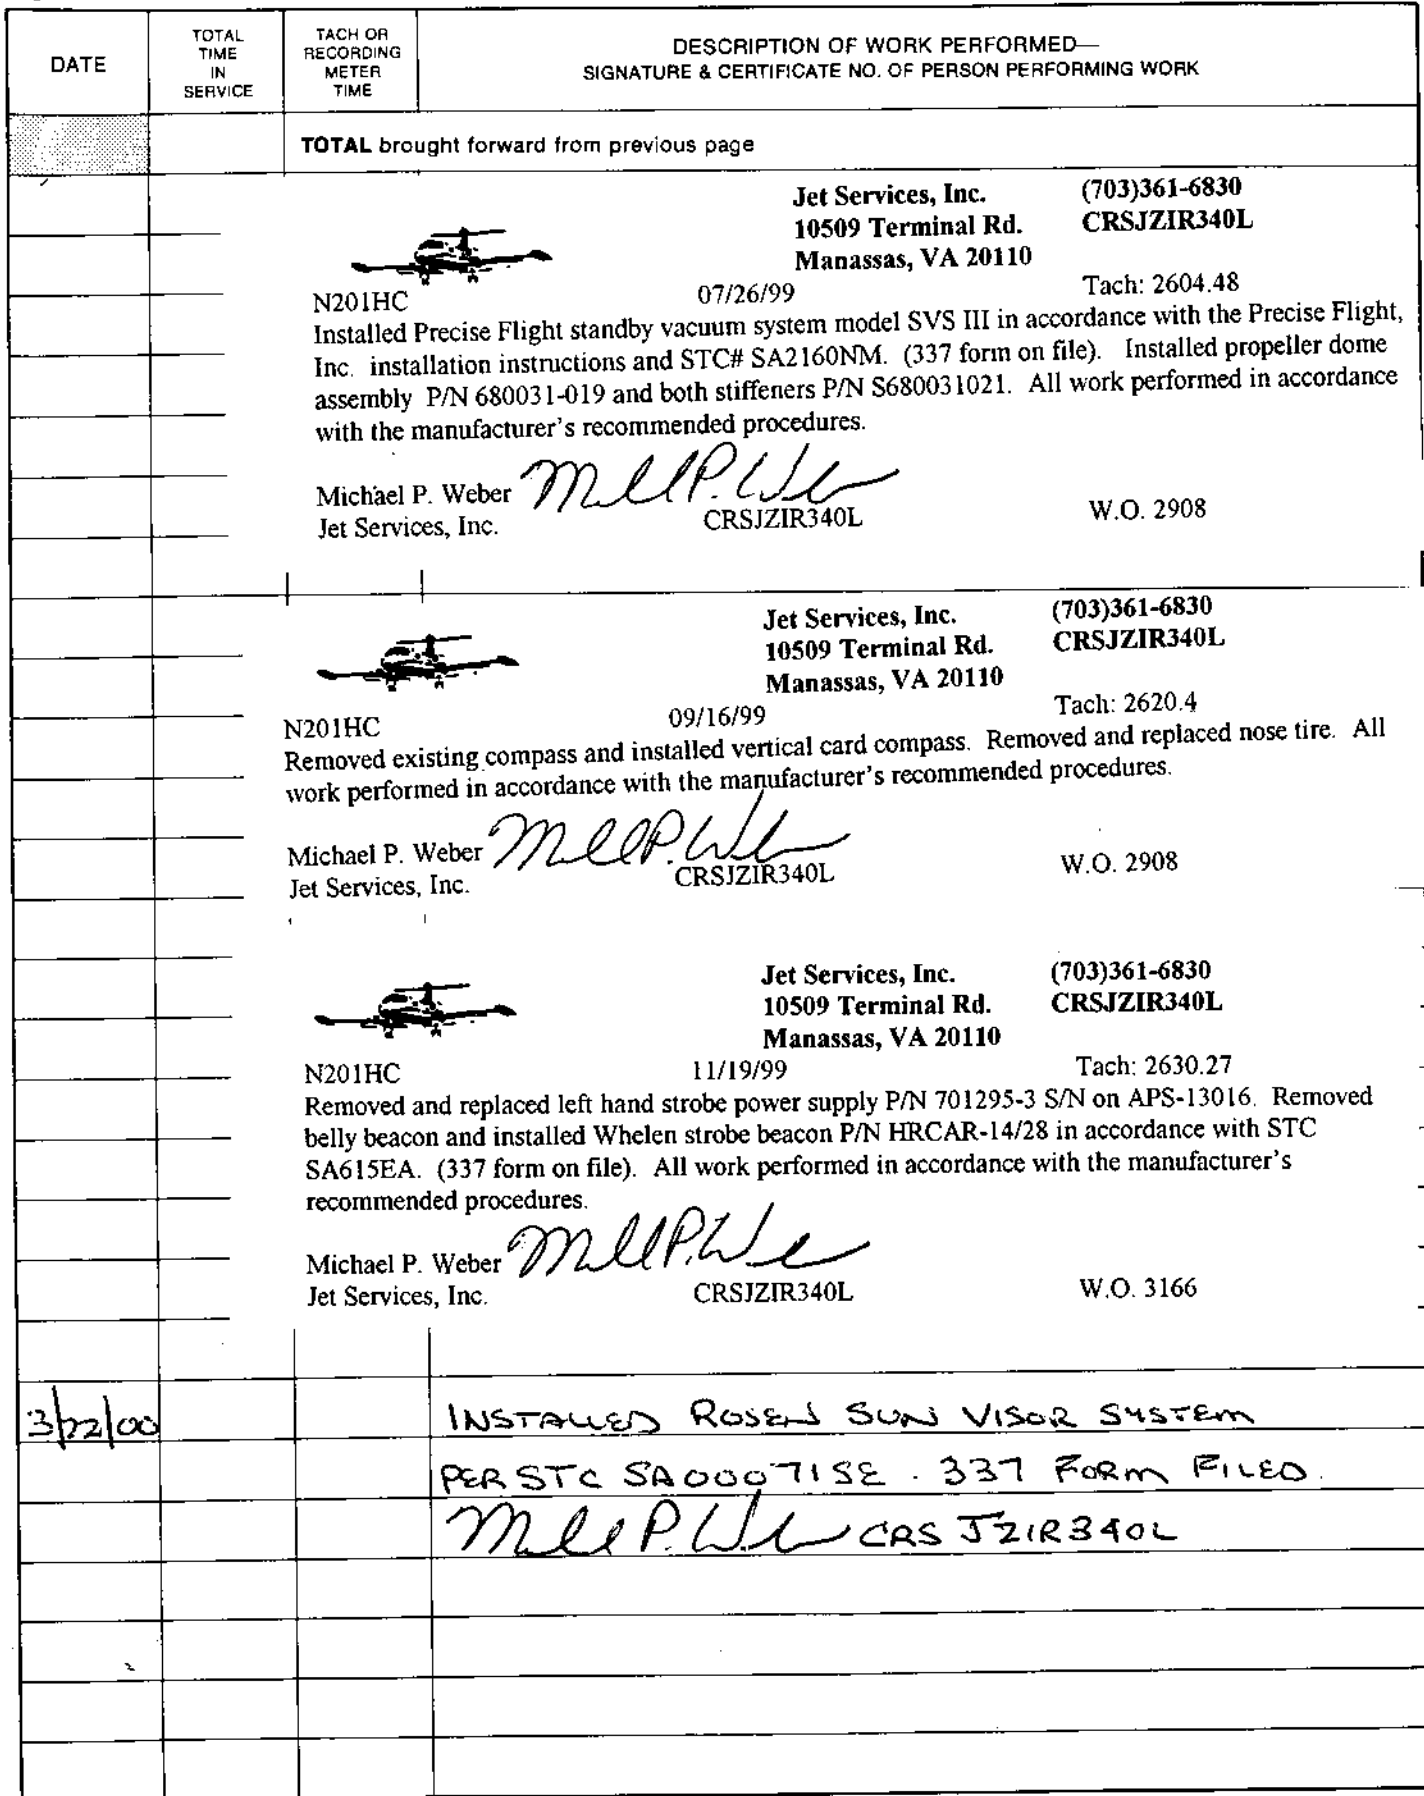 DATE
TOTAL TIME IN SERVICE
TACH OR RECORDING METER TIME
DESCRIPTION OF WORK PERFORMED—
SIGNATURE & CERTIFICATE NO. OF PERSON PERFORMING WORK
TOTAL brought forward from previous page
Jet Services, Inc. (703)361-6830
10509 Terminal Rd. CRSJZIR340L
Manassas, VA 20110
N201HC 07/26/99 Tach: 2604.48
Installed Precise Flight standby vacuum system model SVS III in accordance with the Precise Flight,
Inc. installation instructions and STC# SA2160NM. (337 form on file). Installed propeller dome
assembly P/N 680031-019 and both stiffeners P/N S680031021. All work performed in accordance
with the manufacturer's recommended procedures.
Michael P. Weber
Jet Services, Inc. CRSJZIR340L W.O. 2908
Jet Services, Inc. (703)361-6830
10509 Terminal Rd. CRSJZIR340L
Manassas, VA 20110
N201HC 09/16/99 Tach: 2620.4
Removed existing compass and installed vertical card compass. Removed and replaced nose tire. All
work performed in accordance with the manufacturer's recommended procedures.
Michael P. Weber
Jet Services, Inc. CRSJZIR340L W.O. 2908
Jet Services, Inc. (703)361-6830
10509 Terminal Rd. CRSJZIR340L
Manassas, VA 20110
N201HC 11/19/99 Tach: 2630.27
Removed and replaced left hand strobe power supply P/N 701295-3 S/N on APS-13016. Removed
belly beacon and installed Whelen strobe beacon P/N HRCAR-14/28 in accordance with STC
SA615EA. (337 form on file). All work performed in accordance with the manufacturer's
recommended procedures.
Michael P. Weber
Jet Services, Inc. CRSJZIR340L W.O. 3166
3/22/00 INSTALLED ROSEN SUN VISOR SYSTEM
PER STC SA00071SE. 337 FORM FILED.
CRS JZIR340L